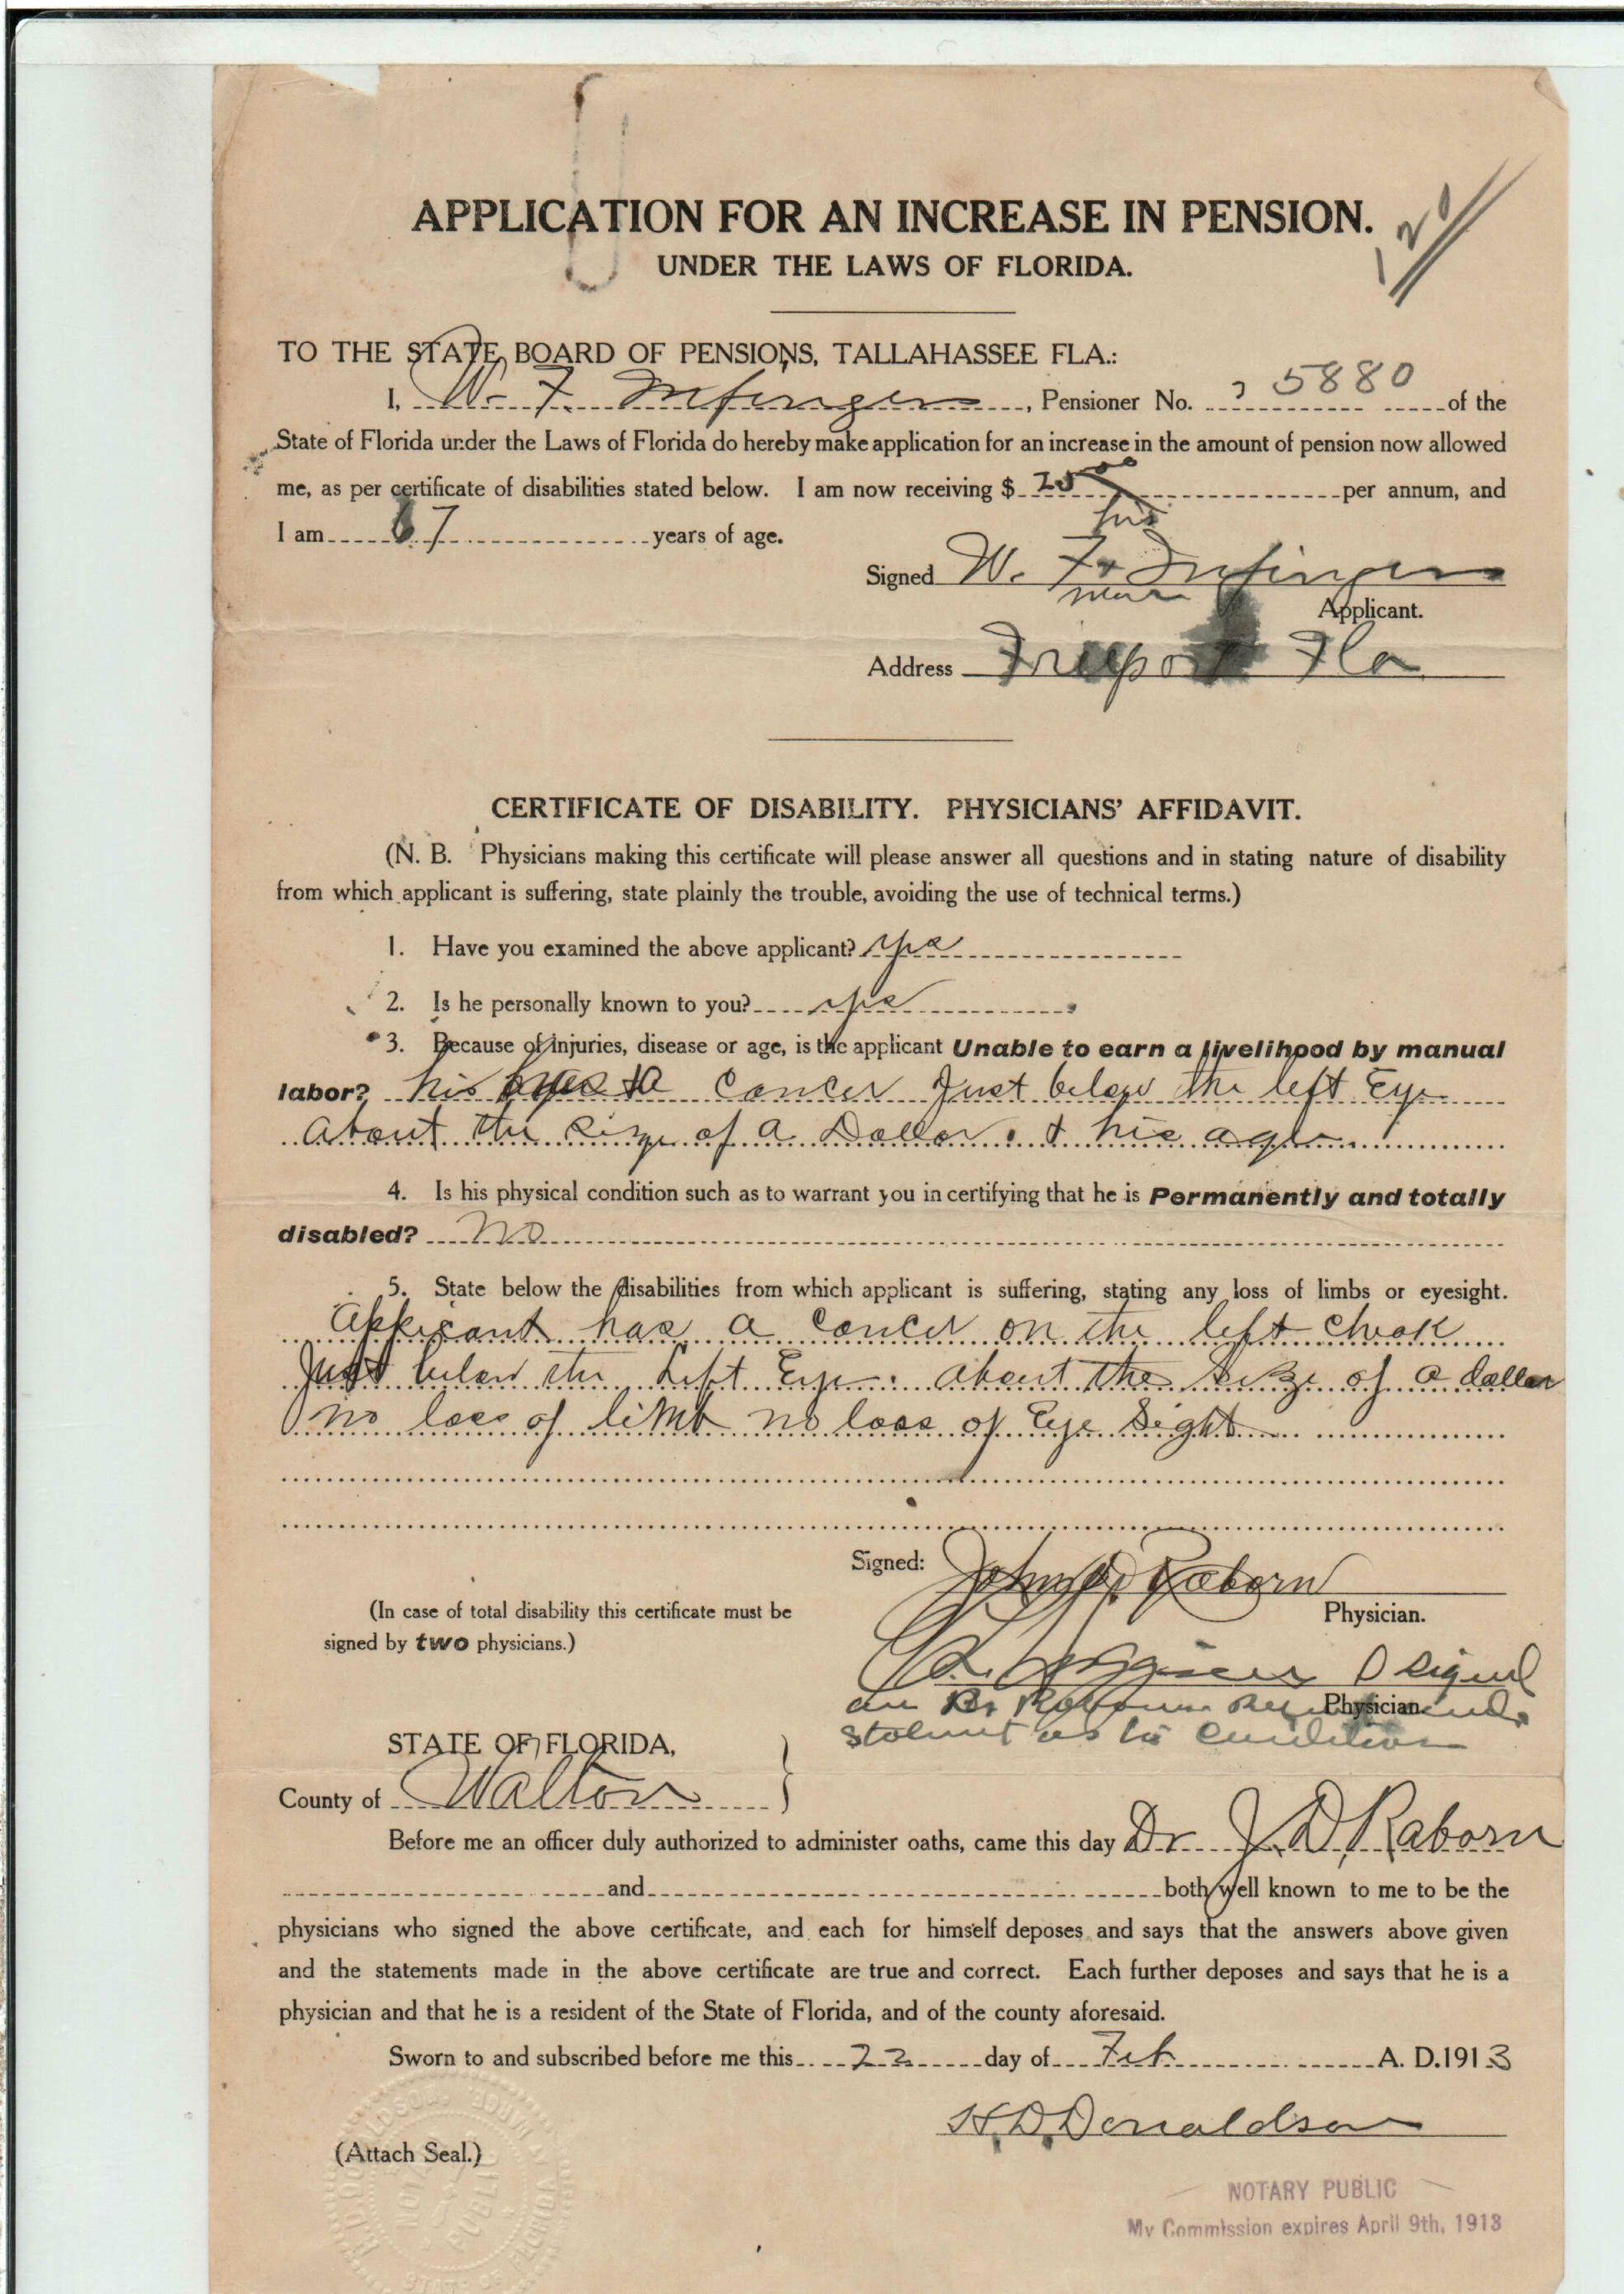 APPLICATION FOR AN INCREASE IN PENSION.
UNDER THE LAWS OF FLORIDA.
TO THE STATE BOARD OF PENSIONS, TALLAHASSEE FLA.:
I, W. F. Infinger, Pensioner No. 5880 of the
State of Florida under the Laws of Florida do hereby make application for an increase in the amount of pension now allowed
me, as per certificate of disabilities stated below. I am now receiving $ per annum, and
I am 67 years of age.
his
Signed W. F x Infinger
mark
Applicant.
Address Freeport Fla
CERTIFICATE OF DISABILITY. PHYSICIANS' AFFIDAVIT.
(N. B. Physicians making this certificate will please answer all questions and in stating nature of disability
from which applicant is suffering, state plainly the trouble, avoiding the use of technical terms.)
1. Have you examined the above applicant? yes
2. Is he personally known to you? yes
3. Because of injuries, disease or age, is the applicant Unable to earn a livelihood by manual
labor? his Cancer Just below the left Eye
About the size of a Dollar. & his age
4. Is his physical condition such as to warrant you in certifying that he is Permanently and totally
disabled? No
5. State below the disabilities from which applicant is suffering, stating any loss of limbs or eyesight.
Applicant has a Cancer on the left cheek
Just below the Left Eye. about the size of a dollar
no loss of limb no loss of Eye Sight
Signed: John D. Raborn
(In case of total disability this certificate must be
Physician.
signed by two physicians.)
Physician.
as to condition
STATE OF FLORIDA,
County of Walton }
Before me an officer duly authorized to administer oaths, came this day Dr. J. D. Raborn
and both well known to me to be the
physicians who signed the above certificate, and each for himself deposes and says that the answers above given
and the statements made in the above certificate are true and correct. Each further deposes and says that he is a
physician and that he is a resident of the State of Florida, and of the county aforesaid.
Sworn to and subscribed before me this 22 day of Feb A. D. 1913
H. D. Donaldson
(Attach Seal.)
NOTARY PUBLIC
My Commission expires April 9th, 1913